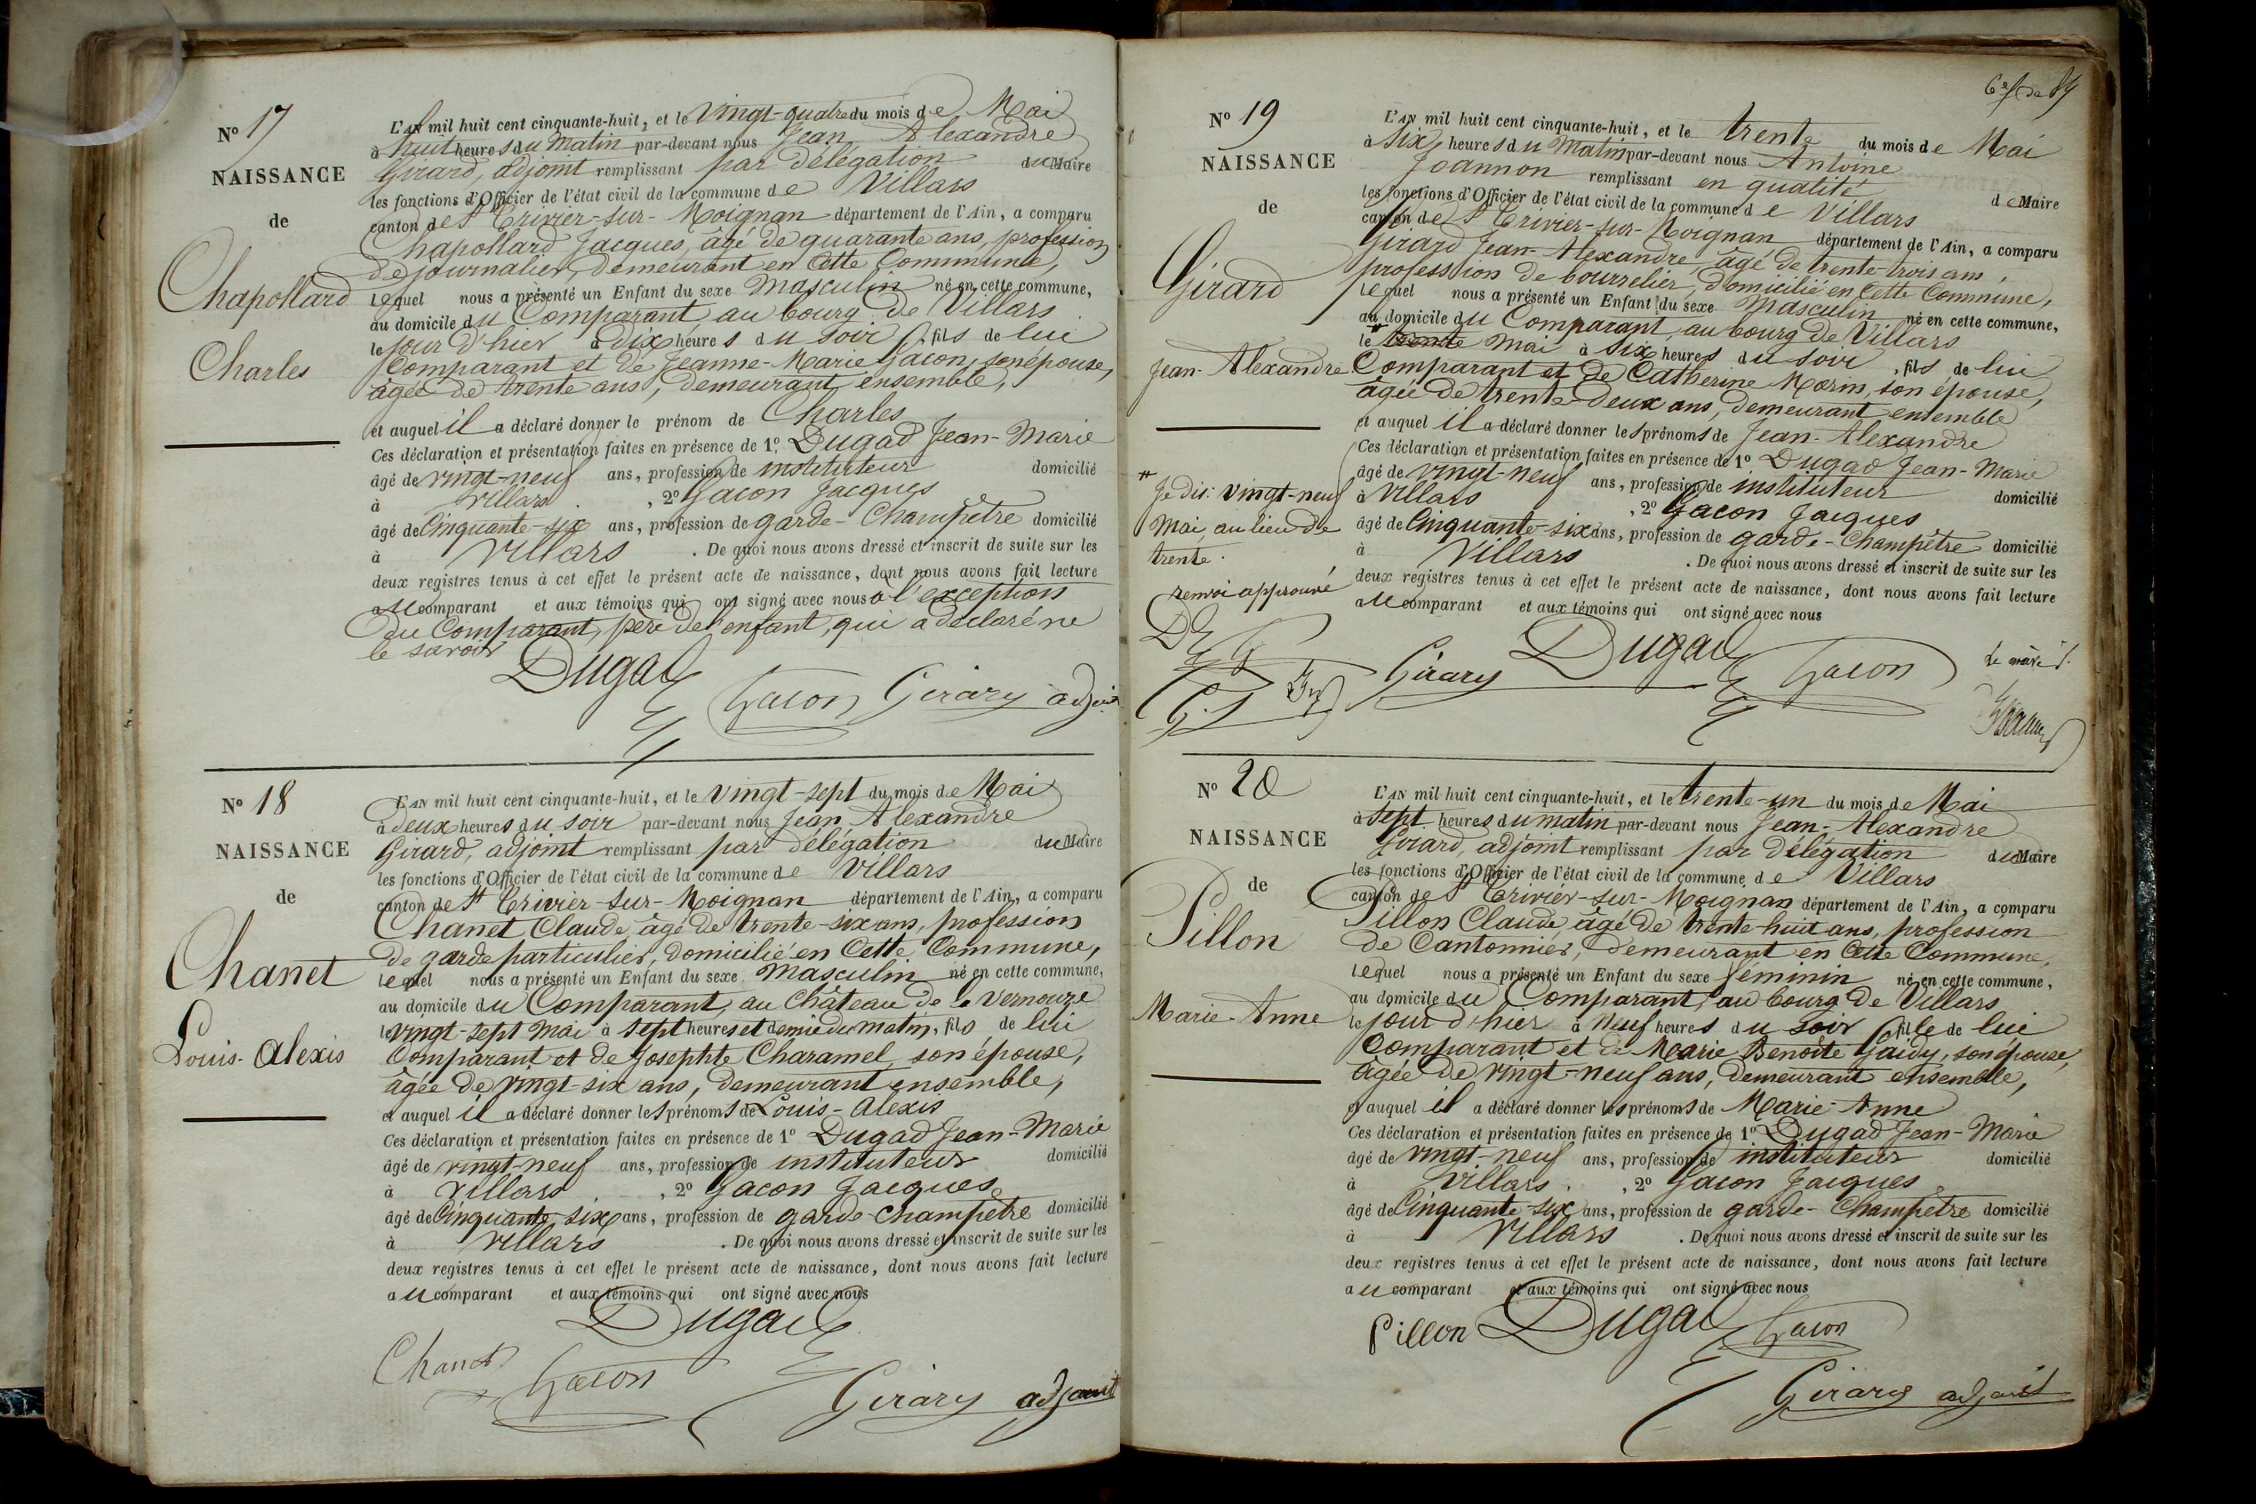 N° 17
NAISSANCE
de
Chapollard
Charles
L'AN mil huit cent cinquante-huit, et le vingt-quatre du mois de Mai
à huit heures du matin par-devant nous Jean Alexandre
Girard, adjoint remplissant par délégation du Maire
les fonctions d'Officier de l'état civil de la commune de Villars
canton de St Trivier-sur-Moignan département de l'Ain, a comparu
Chapollard Jacques, âgé de quarante ans, profession
de journalier, demeurant en cette Commune,
lequel nous a présenté un Enfant du sexe masculin né en cette commune,
au domicile du Comparant au bourg de Villars
le jour d'hier à dix heures du soir, fils de lui
Comparant et de Jeanne-Marie Gacon, son épouse,
âgée de trente ans, demeurant ensemble,
et auquel il a déclaré donner le prénom de Charles
Ces déclaration et présentation faites en présence de 1° Dugad Jean-Marie
âgé de vingt-neuf ans, profession de instituteur domicilié
à Villars, 2° Gacon Jacques
âgé de Cinquante-six ans, profession de garde-Champêtre domicilié
à Villars. De quoi nous avons dressé et inscrit de suite sur les
deux registres tenus à cet effet le présent acte de naissance, dont nous avons fait lecture
au comparant et aux témoins qui ont signé avec nous à l'exception
du Comparant, père de l'enfant, qui a déclaré ne
le savoir
Dugad
Gacon Girard adjoint
N° 18
NAISSANCE
de
Chanet
Louis-Alexis
L'AN mil huit cent cinquante-huit, et le vingt-sept du mois de Mai
à deux heures du soir par-devant nous Jean Alexandre
Girard, adjoint remplissant par délégation du Maire
les fonctions d'Officier de l'état civil de la commune de Villars
canton de St Trivier-sur-Moignan département de l'Ain, a comparu
Chanet Claude, âgé de trente-six ans, profession
de garde particulier, domicilié en cette Commune,
lequel nous a présenté un Enfant du sexe masculin né en cette commune,
au domicile du Comparant, au Château de le Vernouze
le vingt-sept mai à sept heures et demie du matin, fils de lui
Comparant et de Josephte Charamel, son épouse,
âgée de vingt-six ans, demeurant ensemble,
et auquel il a déclaré donner les prénoms de Louis-Alexis
Ces déclaration et présentation faites en présence de 1° Dugad Jean-Marie
âgé de vingt-neuf ans, profession de instituteur domicilié
à Villars, 2° Gacon Jacques
âgé de Cinquante-six ans, profession de garde-champêtre domicilié
à Villars. De quoi nous avons dressé et inscrit de suite sur les
deux registres tenus à cet effet le présent acte de naissance, dont nous avons fait lecture
au comparant et aux témoins qui ont signé avec nous
Dugad
Chanet
Gacon
Girard adjoint
N° 19
NAISSANCE
de
Girard
Jean-Alexandre
* Je dis: vingt-neuf
Mai, au lieu de
trente.
renvoi approuvé
L'AN mil huit cent cinquante-huit, et le trente du mois de Mai
à six heures du matin par-devant nous Antoine
Joannon remplissant en qualité de Maire
les fonctions d'Officier de l'état civil de la commune de Villars
canton de St Trivier-sur-Moignan département de l'Ain, a comparu
Girard Jean-Alexandre, âgé de trente-trois ans,
profession de bourrelier, domicilié en cette Commune,
lequel nous a présenté un Enfant du sexe masculin né en cette commune,
au domicile du Comparant, au bourg de Villars
* le trente mai à six heures du soir, fils de lui
Comparant et de Catherine Morin, son épouse,
âgée de trente-deux ans, demeurant ensemble
et auquel il a déclaré donner les prénoms de Jean-Alexandre
Ces déclaration et présentation faites en présence de 1° Dugad Jean-Marie
âgé de vingt-neuf ans, profession de instituteur domicilié
à Villars, 2° Gacon Jacques
âgé de Cinquante-six ans, profession de garde-champêtre domicilié
à Villars. De quoi nous avons dressé et inscrit de suite sur les
deux registres tenus à cet effet le présent acte de naissance, dont nous avons fait lecture
au comparant et aux témoins qui ont signé avec nous
Girard Dugad Gacon Le maire
N° 20
NAISSANCE
de
Pillon
Marie-Anne
L'AN mil huit cent cinquante-huit, et le trente-un du mois de Mai
à sept heures du matin par-devant nous Jean-Alexandre
Girard, adjoint remplissant par délégation du Maire
les fonctions d'Officier de l'état civil de la commune de Villars
canton de St Trivier-sur-Moignan département de l'Ain, a comparu
Pillon Claude, âgé de trente-huit ans, profession
de Cantonnier, demeurant en cette Commune,
lequel nous a présenté un Enfant du sexe féminin né en cette commune,
au domicile du Comparant, au bourg de Villars
le jour d'hier à neuf heures du soir, fille de lui
Comparant et de Marie Benoîte Gaidy, son épouse,
âgée de vingt-neuf ans, demeurant ensemble,
et auquel il a déclaré donner les prénoms de Marie-Anne
Ces déclaration et présentation faites en présence de 1° Dugad Jean-Marie
âgé de vingt-neuf ans, profession de instituteur domicilié
à Villars, 2° Gacon Jacques
âgé de Cinquante-six ans, profession de garde-Champêtre domicilié
à Villars. De quoi nous avons dressé et inscrit de suite sur les
deux registres tenus à cet effet le présent acte de naissance, dont nous avons fait lecture
au comparant et aux témoins qui ont signé avec nous
Pillon Dugad Gacon
Girard adjoint